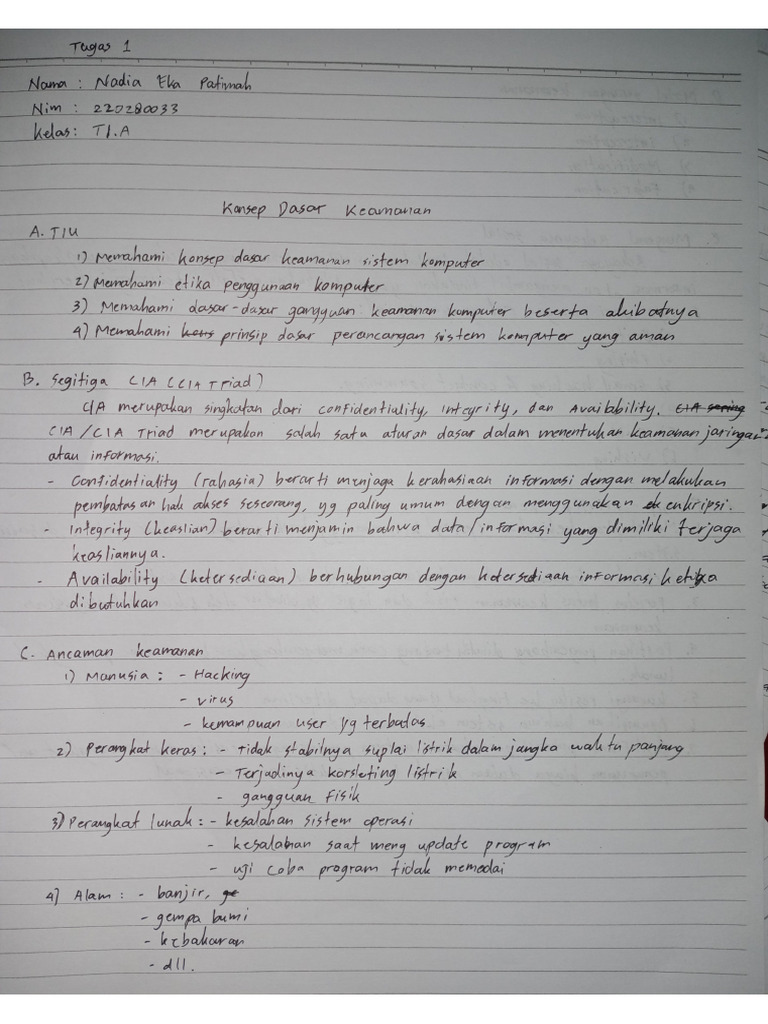 Tugas 1
Nama : Nadia Eka Fatimah
Nim : 220280033
Kelas: TI.A
Konsep Dasar Keamanan
A. TIU
1) Memahami konsep dasar keamanan sistem komputer
2) Memahami etika penggunaan komputer
3) Memahami dasar-dasar gangguan keamanan komputer beserta akibatnya
4) Memahami prinsip dasar perancangan sistem komputer yang aman
B. Segitiga CIA (CIA Triad)
CIA merupakan singkatan dari Confidentiality, Integrity, dan Availability. CIA sering
CIA/CIA Triad merupakan salah satu aturan dasar dalam menentukan keamanan jaringan
atau informasi.
- Confidentiality (rahasia) berarti menjaga kerahasiaan informasi dengan melakukan
pembatasan hak akses seseorang, yg paling umum dengan menggunakan enkripsi.
- Integrity (keaslian) berarti menjamin bahwa data/informasi yang dimiliki terjaga
keasliannya.
- Availability (ketersediaan) berhubungan dengan ketersediaan informasi ketika
dibutuhkan
C. Ancaman keamanan
1) Manusia : - Hacking
- virus
- kemampuan user yg terbatas
2) Perangkat keras : - Tidak stabilnya suplai listrik dalam jangka waktu panjang
- Terjadinya korsleting listrik
- gangguan fisik
3) Perangkat lunak : - kesalahan sistem operasi
- kesalahan saat meng update program
- uji coba program tidak memadai
4) Alam : - banjir,
- gempa bumi
- kebakaran
- dll.